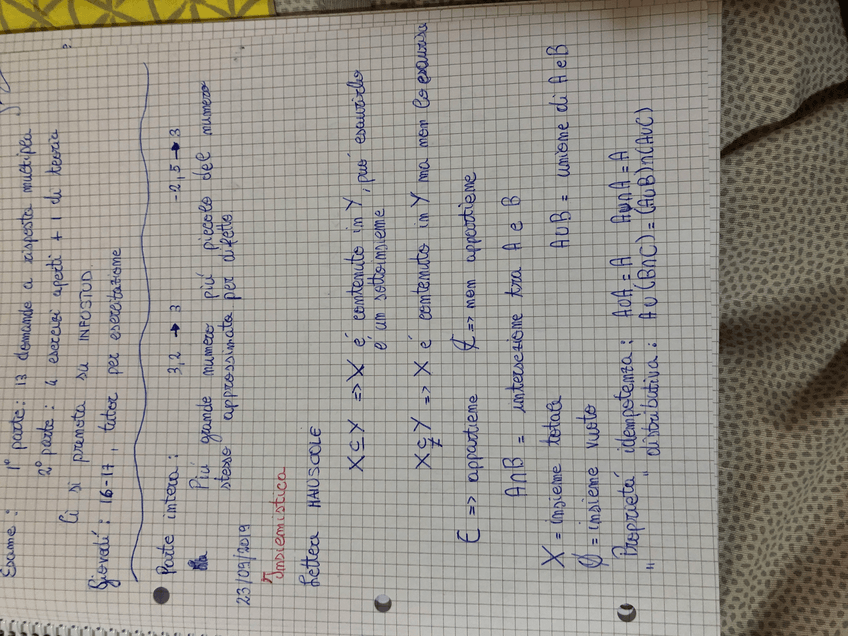 Esame: 1° parte: 13 domande a risposta multipla
2° parte: 4 esercizi aperti + 1 di teoria ?
Ci si prenota su INFOSTUD
Giovedí: 16-17, tutor per esercitazione
Parte intera: 3,2 → 3 -2,5 → 3
Piú grande numero piú piccolo del numero
stesso approssimata per difetto
23/09/2019
Insiemistica
Lettera MAIUSCOLE
X ⊆ Y => X é contenuto in Y, puó esaurirlo
é un sottoinsieme
X ⊊ Y => X é contenuto in Y ma non lo esaurisce
∈ => appartiene ∉ => non appartiene
A∩B = intersezione tra A e B
X = insieme totale A∪B = unione di A e B
∅ = insieme vuoto
"Proprietá idempotenza: A∪A = A A∩A = A
" " distributiva: A∪(B∩C) = (A∪B)∩(A∪C)